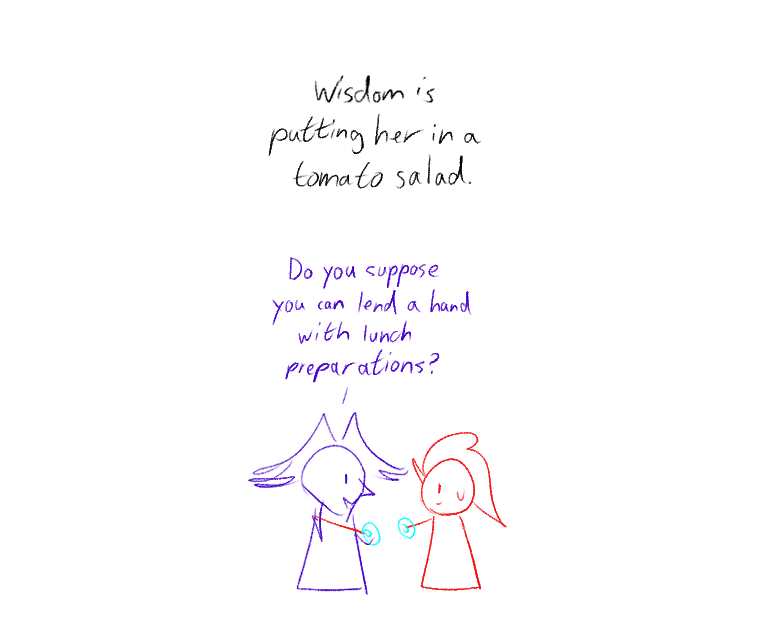 Wisdom is
putting her in a
tomato salad.
Do you suppose
you can lend a hand
with lunch
preparations?